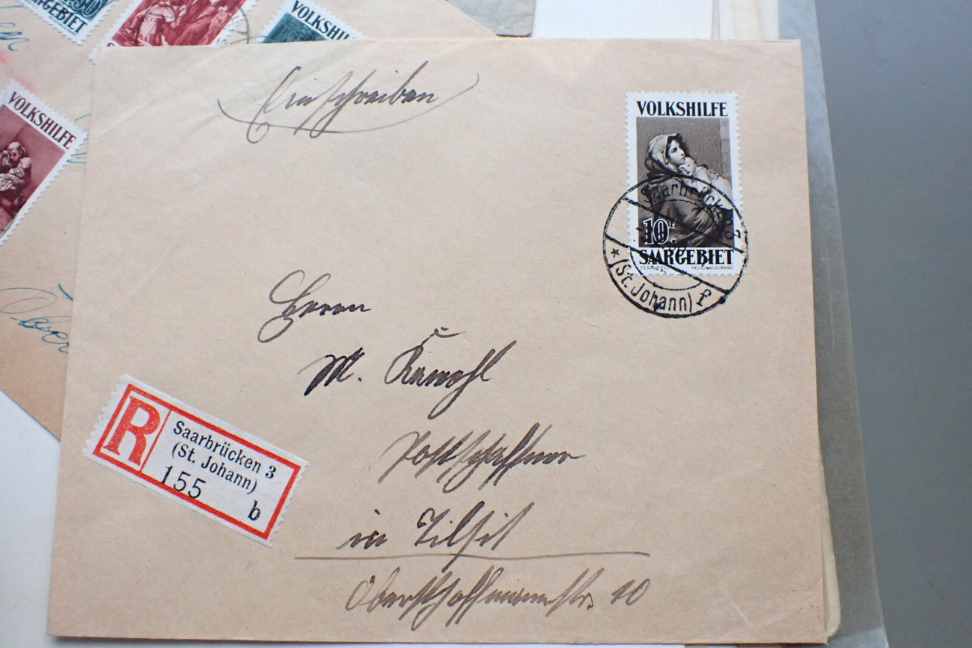 VOLKSHILFE
Einschreiben
VOLKSHILFE
SAARGEBIET
VOLKSHILFE
10
SAARGEBIET
Saarbrücken 3
(St. Johann) f
Herrn
M.
Postschaffner
in Tilsit
10
R
Saarbrücken 3
(St. Johann)
155
b